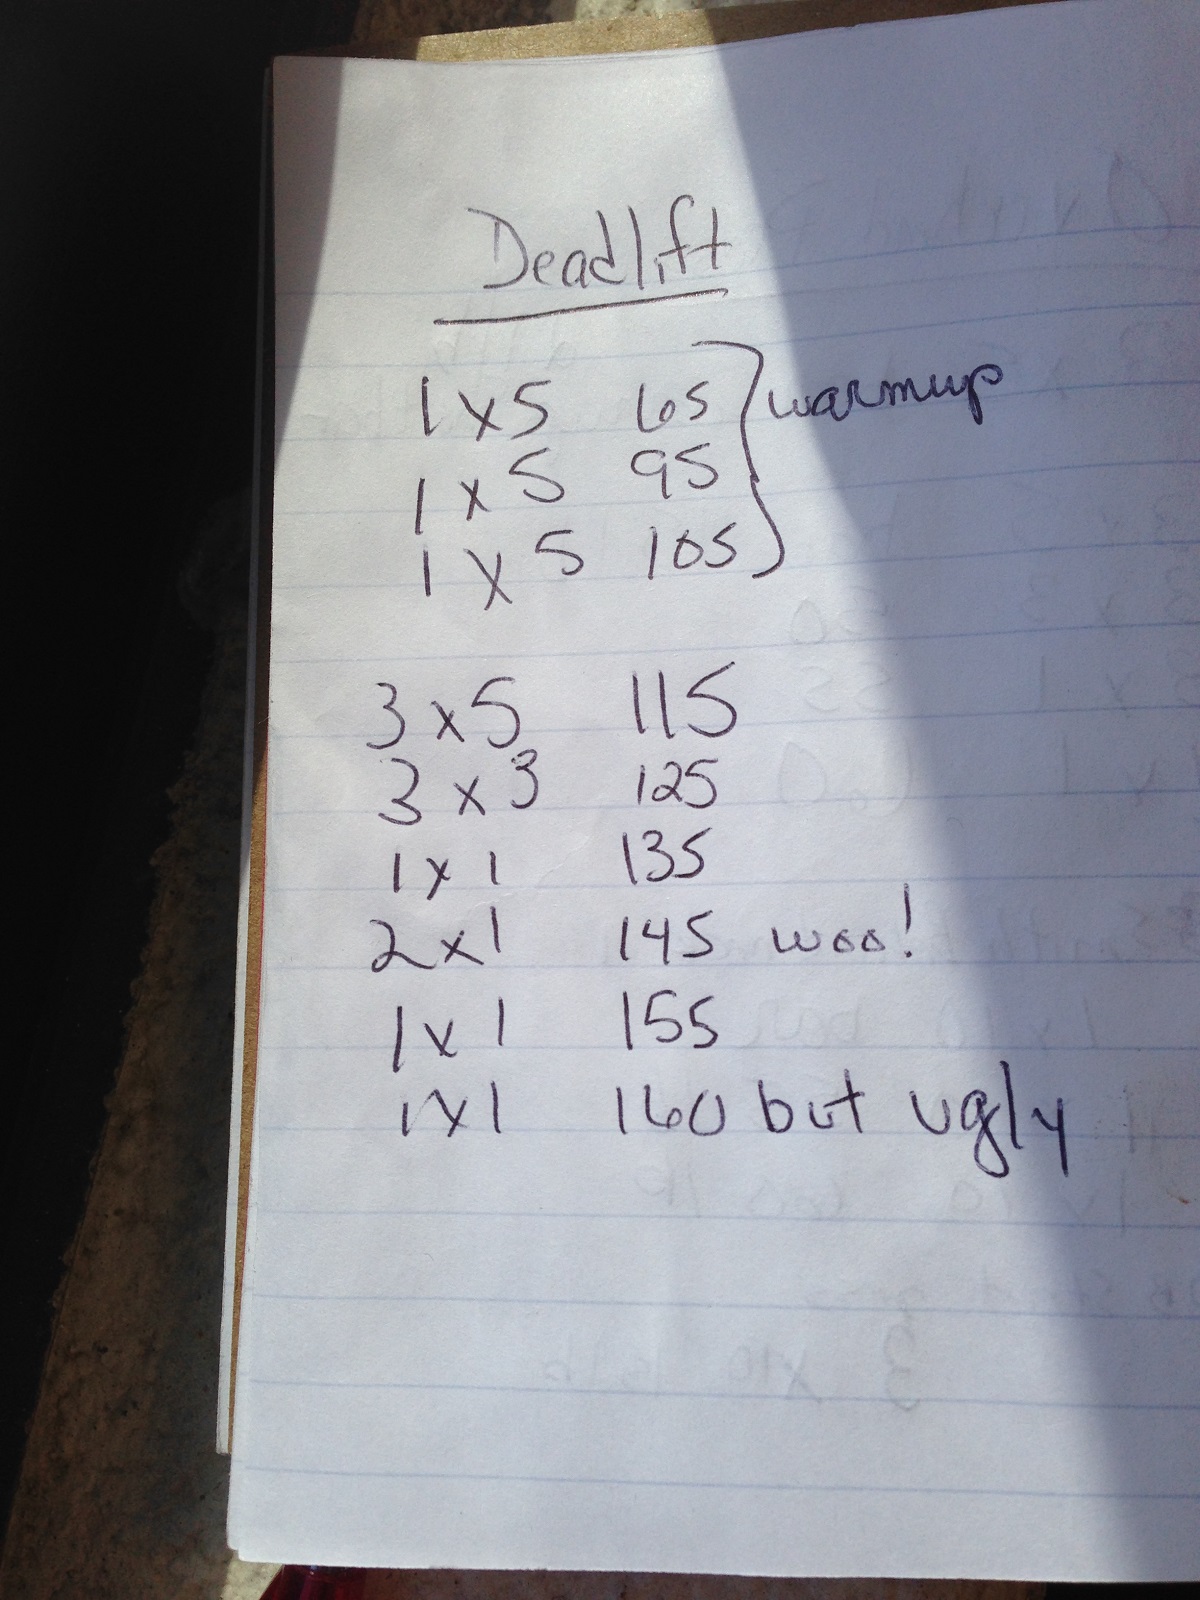 Deadlift
1 x 5 65
warmup
1 x 5 95
1 x 5 105
3 x 5 115
3 x 3 125
1 x 1 135
2 x 1 145 woo!
1 x 1 155
1 x 1 160 but ugly